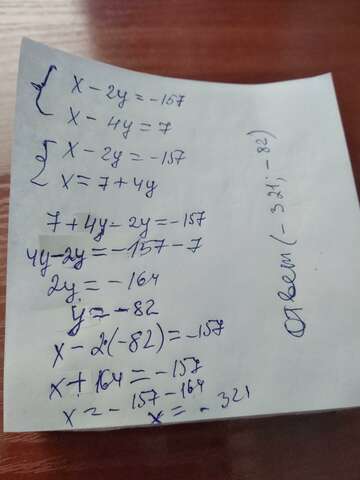 x - 2y = -157
x - 4y = 7
x - 2y = -157
x = 7 + 4y
7 + 4y - 2y = -157
4y - 2y = -157 - 7
2y = -164
y = -82
x - 2·(-82) = -157
x + 164 = -157
x = -157 - 164
x = -321
Ответ (-321; -82)